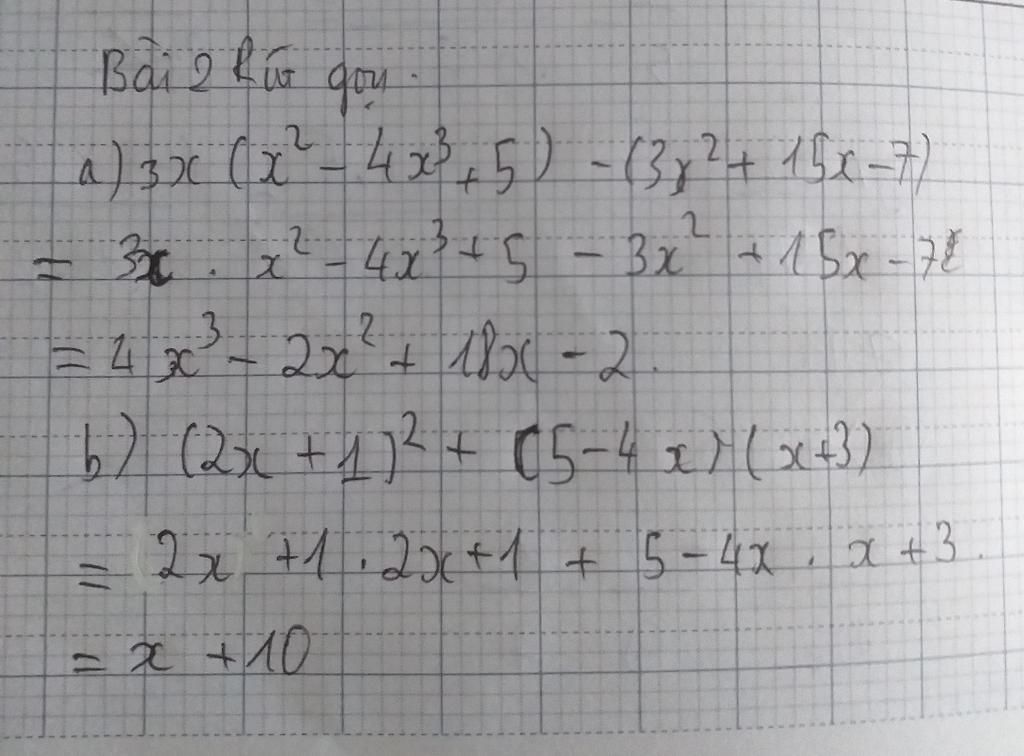 Bài 2 Rút gọn.
a) 3x (x² - 4x³ + 5) - (3x² + 15x - 7)
= 3x . x² - 4x³ + 5 - 3x² + 15x - 7
= 4x³ - 2x² + 18x - 2.
b) (2x + 1)² + (5 - 4x) (x + 3)
= 2x + 1 . 2x + 1 + 5 - 4x . x + 3.
= x + 10